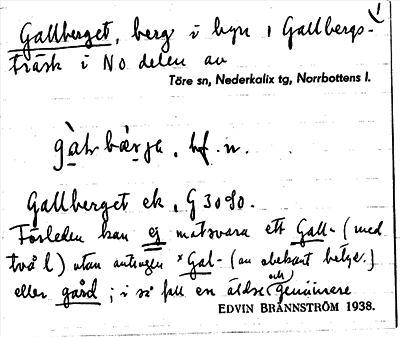 Gallberget, berg i byn, Gallbergs-
träsk i NO delen av
Töre sn, Nederkalix tg, Norrbottens l.
bf. n.
Gallberget ek., G 3090.
Förleden kan ej motsvara ett Gall- (med
två l) utan antingen *Gal- (av obekant betyd.)
eller gård; i så fall en äldre och genuinare
EDVIN BRÄNNSTRÖM 1938.